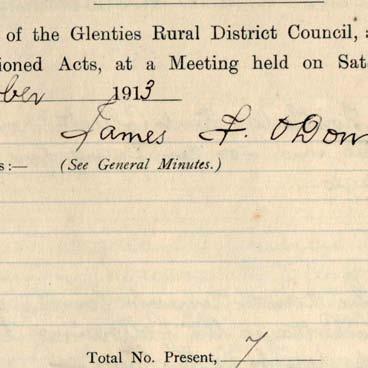 of the Glenties Rural District Council,
tioned Acts, at a Meeting held on Sat
ber 1913
James F. O'Don
s:— (See General Minutes.)
Total No. Present, 7